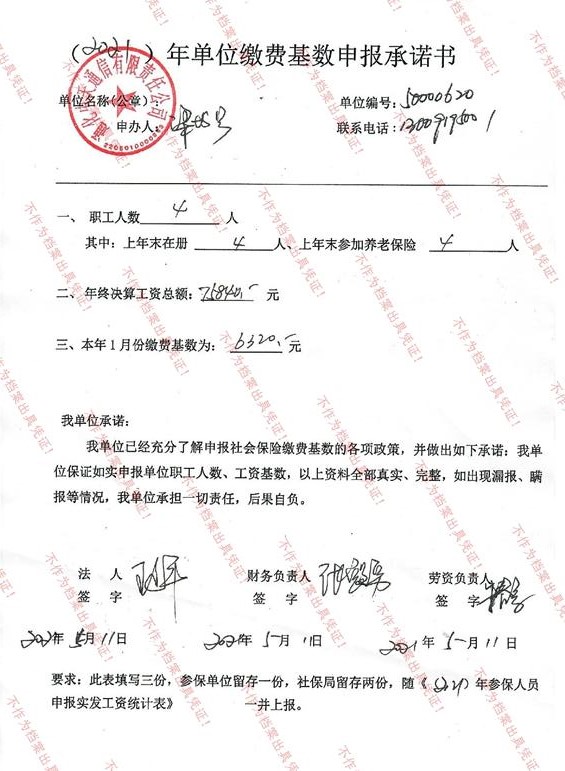 （2021）年单位缴费基数申报承诺书
单位名称(公章)： 单位编号：50000620
申办人： 联系电话：
天通信有限责任公司
一、 职工人数 4 人
其中：上年末在册 4 人、上年末参加养老保险 4 人
二、年终决算工资总额：75840.- 元
三、本年1月份缴费基数为： 6320.- 元
我单位承诺：
我单位已经充分了解申报社会保险缴费基数的各项政策，并做出如下承诺：我单
位保证如实申报单位职工人数、工资基数，以上资料全部真实、完整，如出现漏报、瞒
报等情况，我单位承担一切责任，后果自负。
法 人 财务负责人 劳资负责人
签 字 签 字 签 字
2021年 5月11日 2021年 5月11日 2021年 5月11日
要求：此表填写三份，参保单位留存一份，社保局留存两份，随《（2021）年参保人员
申报实发工资统计表》 一并上报。
不作为档案出具凭证！